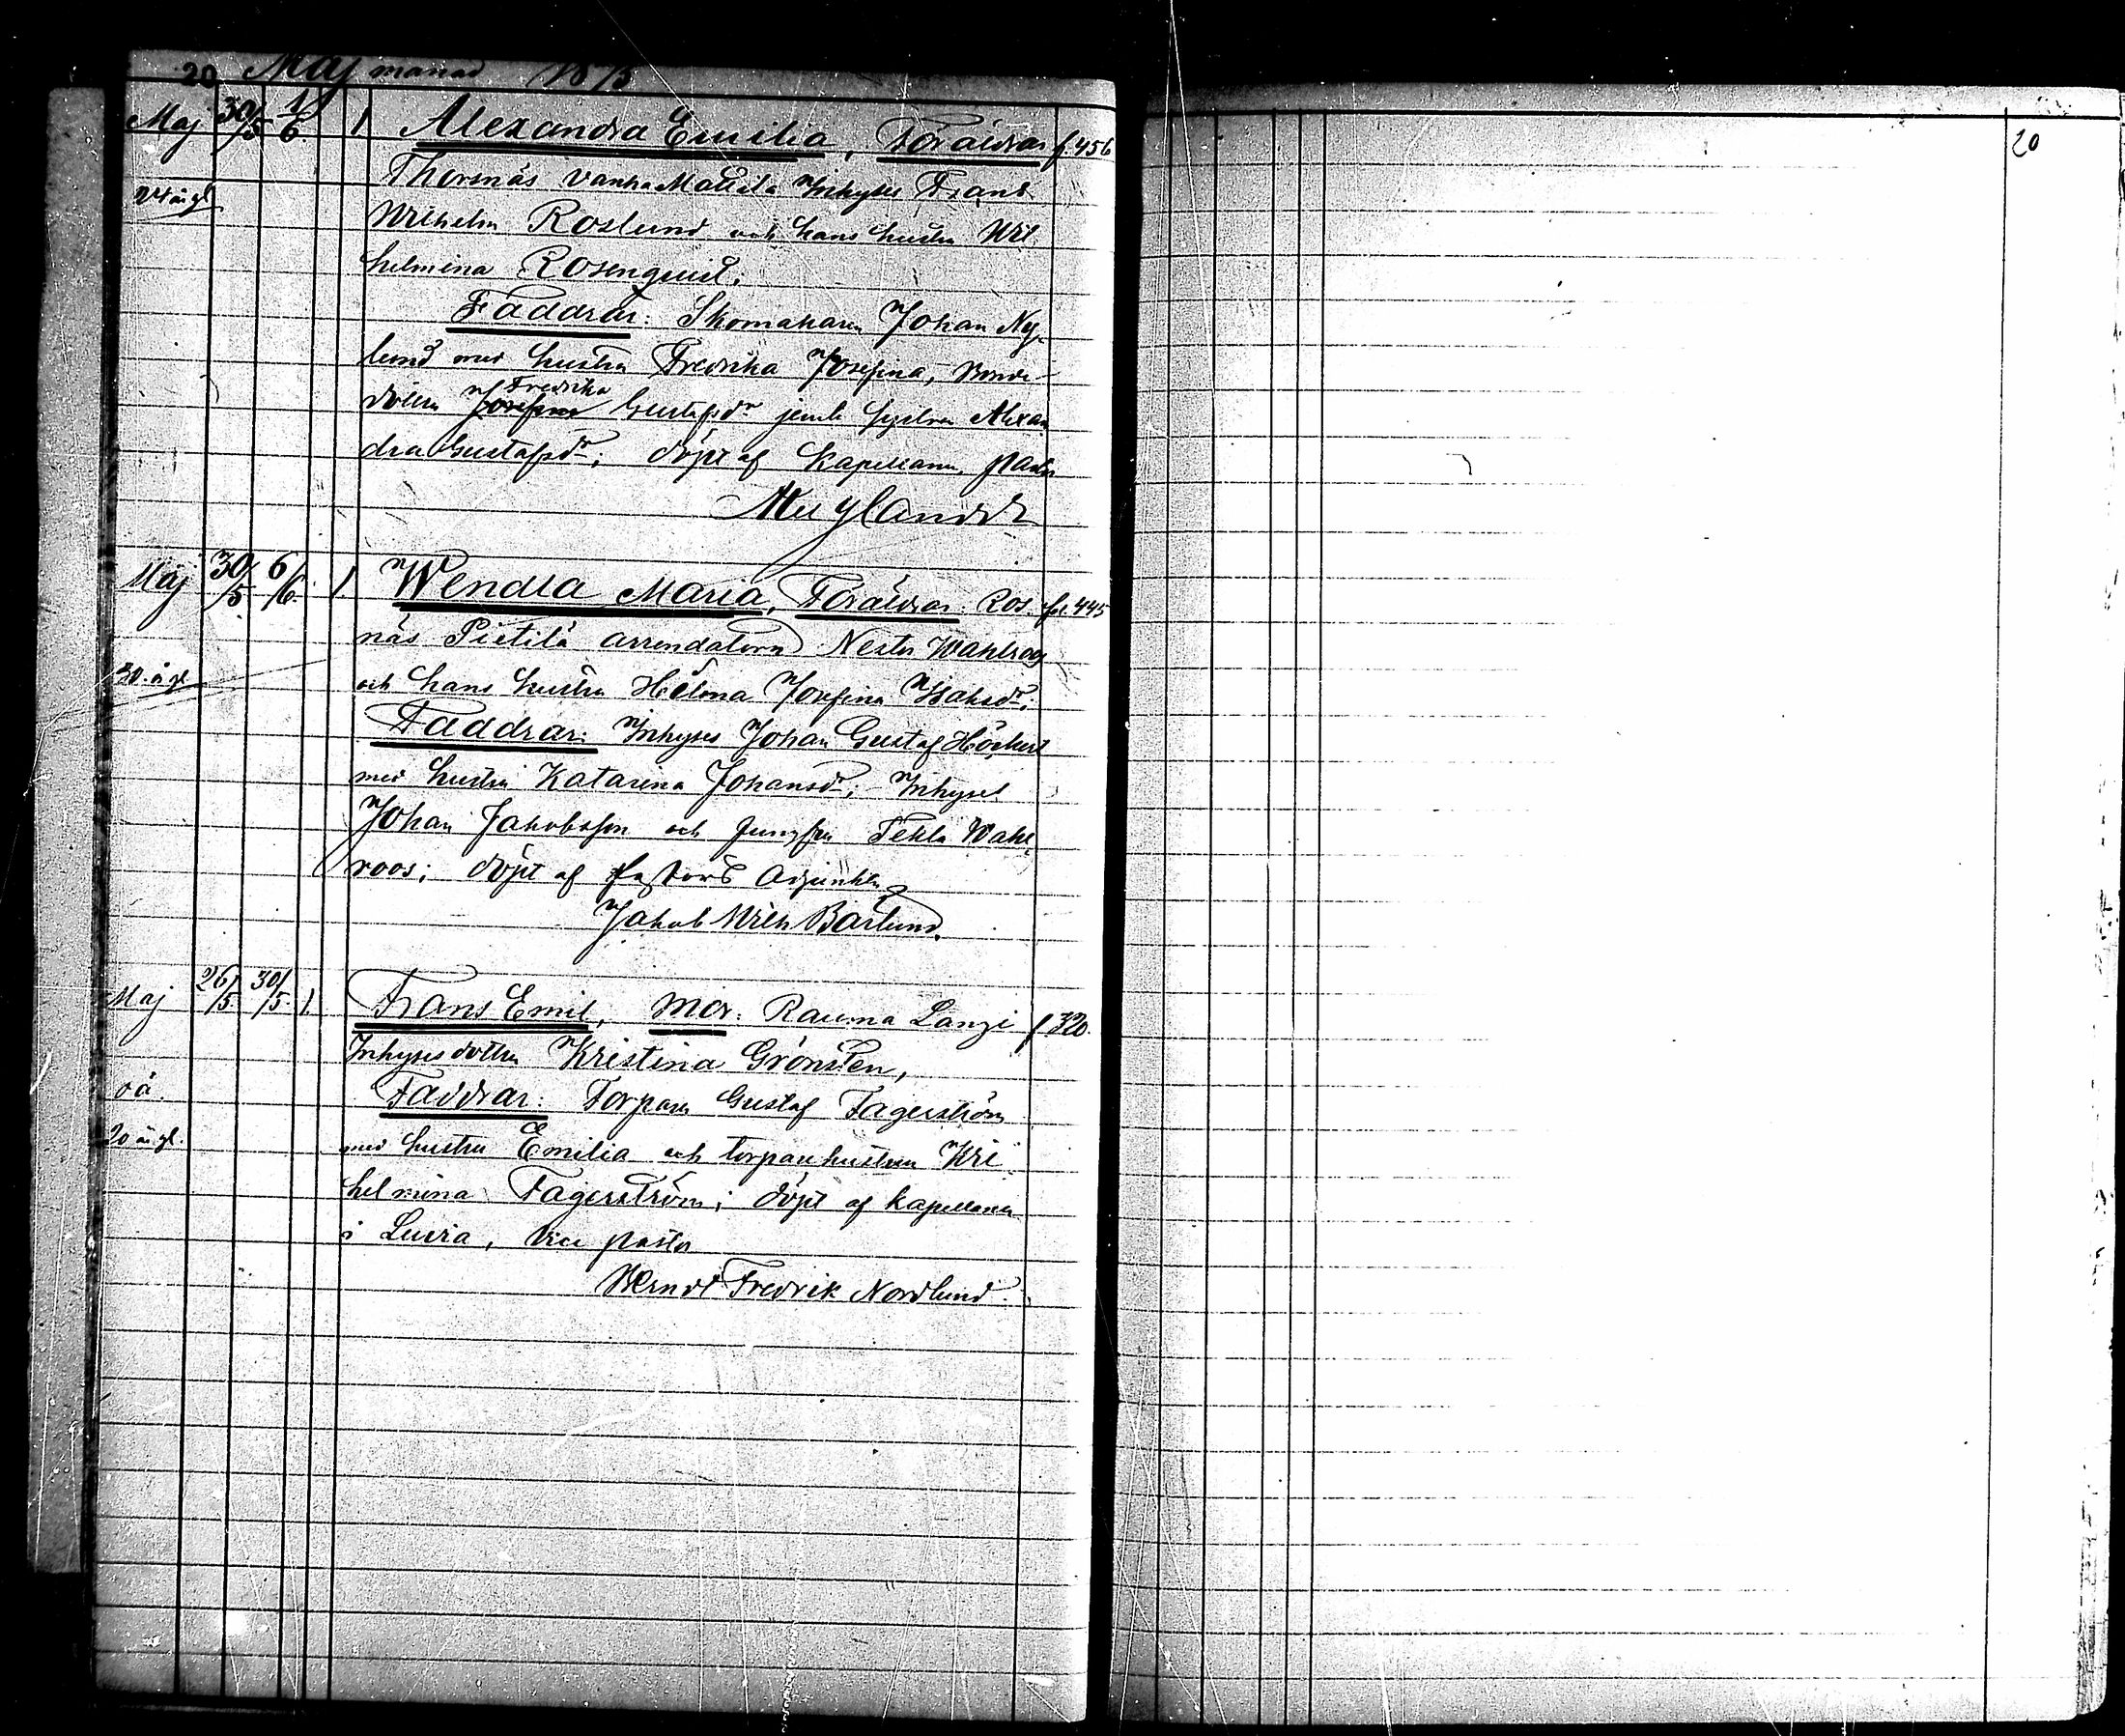 20 Maj månad 1875
Maj 30/5 1/6 1 Alexandra Emilia, Föräldrar f. 456
Thornäs Vanha Mattila Inhyses Frans
24 år gl Wilhelm Roslund och hans hustru Wil
helmina Rosenqvist;
Faddrar: Skomakaren Johan Ny-
lund med hustru Fredrika Josefina, Bonde-
Fredrika
dottren Josefina Gustafsdr jemte Alexan
dra Gustafsdr; döpt af Kapellanen, pastor
Maj 30/5 6/6 1 Wendla Maria, Föräldrar: Ros- fol. 445
näs Pietilä arrendatorn Nestor Wahlroos
30 år gl och hans hustru Helma Josefina Isaksdr;
Faddrar: Inhyses Johan Gustaf Höckert
med hustru Katarina Johansdr; Inhyses
Johan Jakobsson och Jungfru Tekla Wahl-
roos; döpt af Pastors Adjunkten
Jakob Wilh Bärlund.
Maj 26/5 30/5 1. Frans Emil, Mor: Rauma Lanzi f. 320.
Inhysesdottren Kristina Grönsten,
oä. Faddrar: Torparen Gustaf Fagerström
20 år gl. med hustru Emilia och torparehustrun Wil-
helmina Fagerström; döpt af kapellanen
i Luvia, Vice pastor
Berndt Fredrik Nordlund.
20